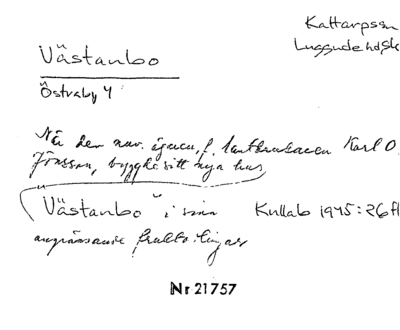 Kattarpssn
Luggude hdsk
Västanbo
Östraby 4
När den nuv. ägaren, f. lantbrukaren Karl O.
Jönsson, byggde sitt nya hus
"Västanbo" i sina Kullab 1945:26 ff
angränsande
Nr 21757